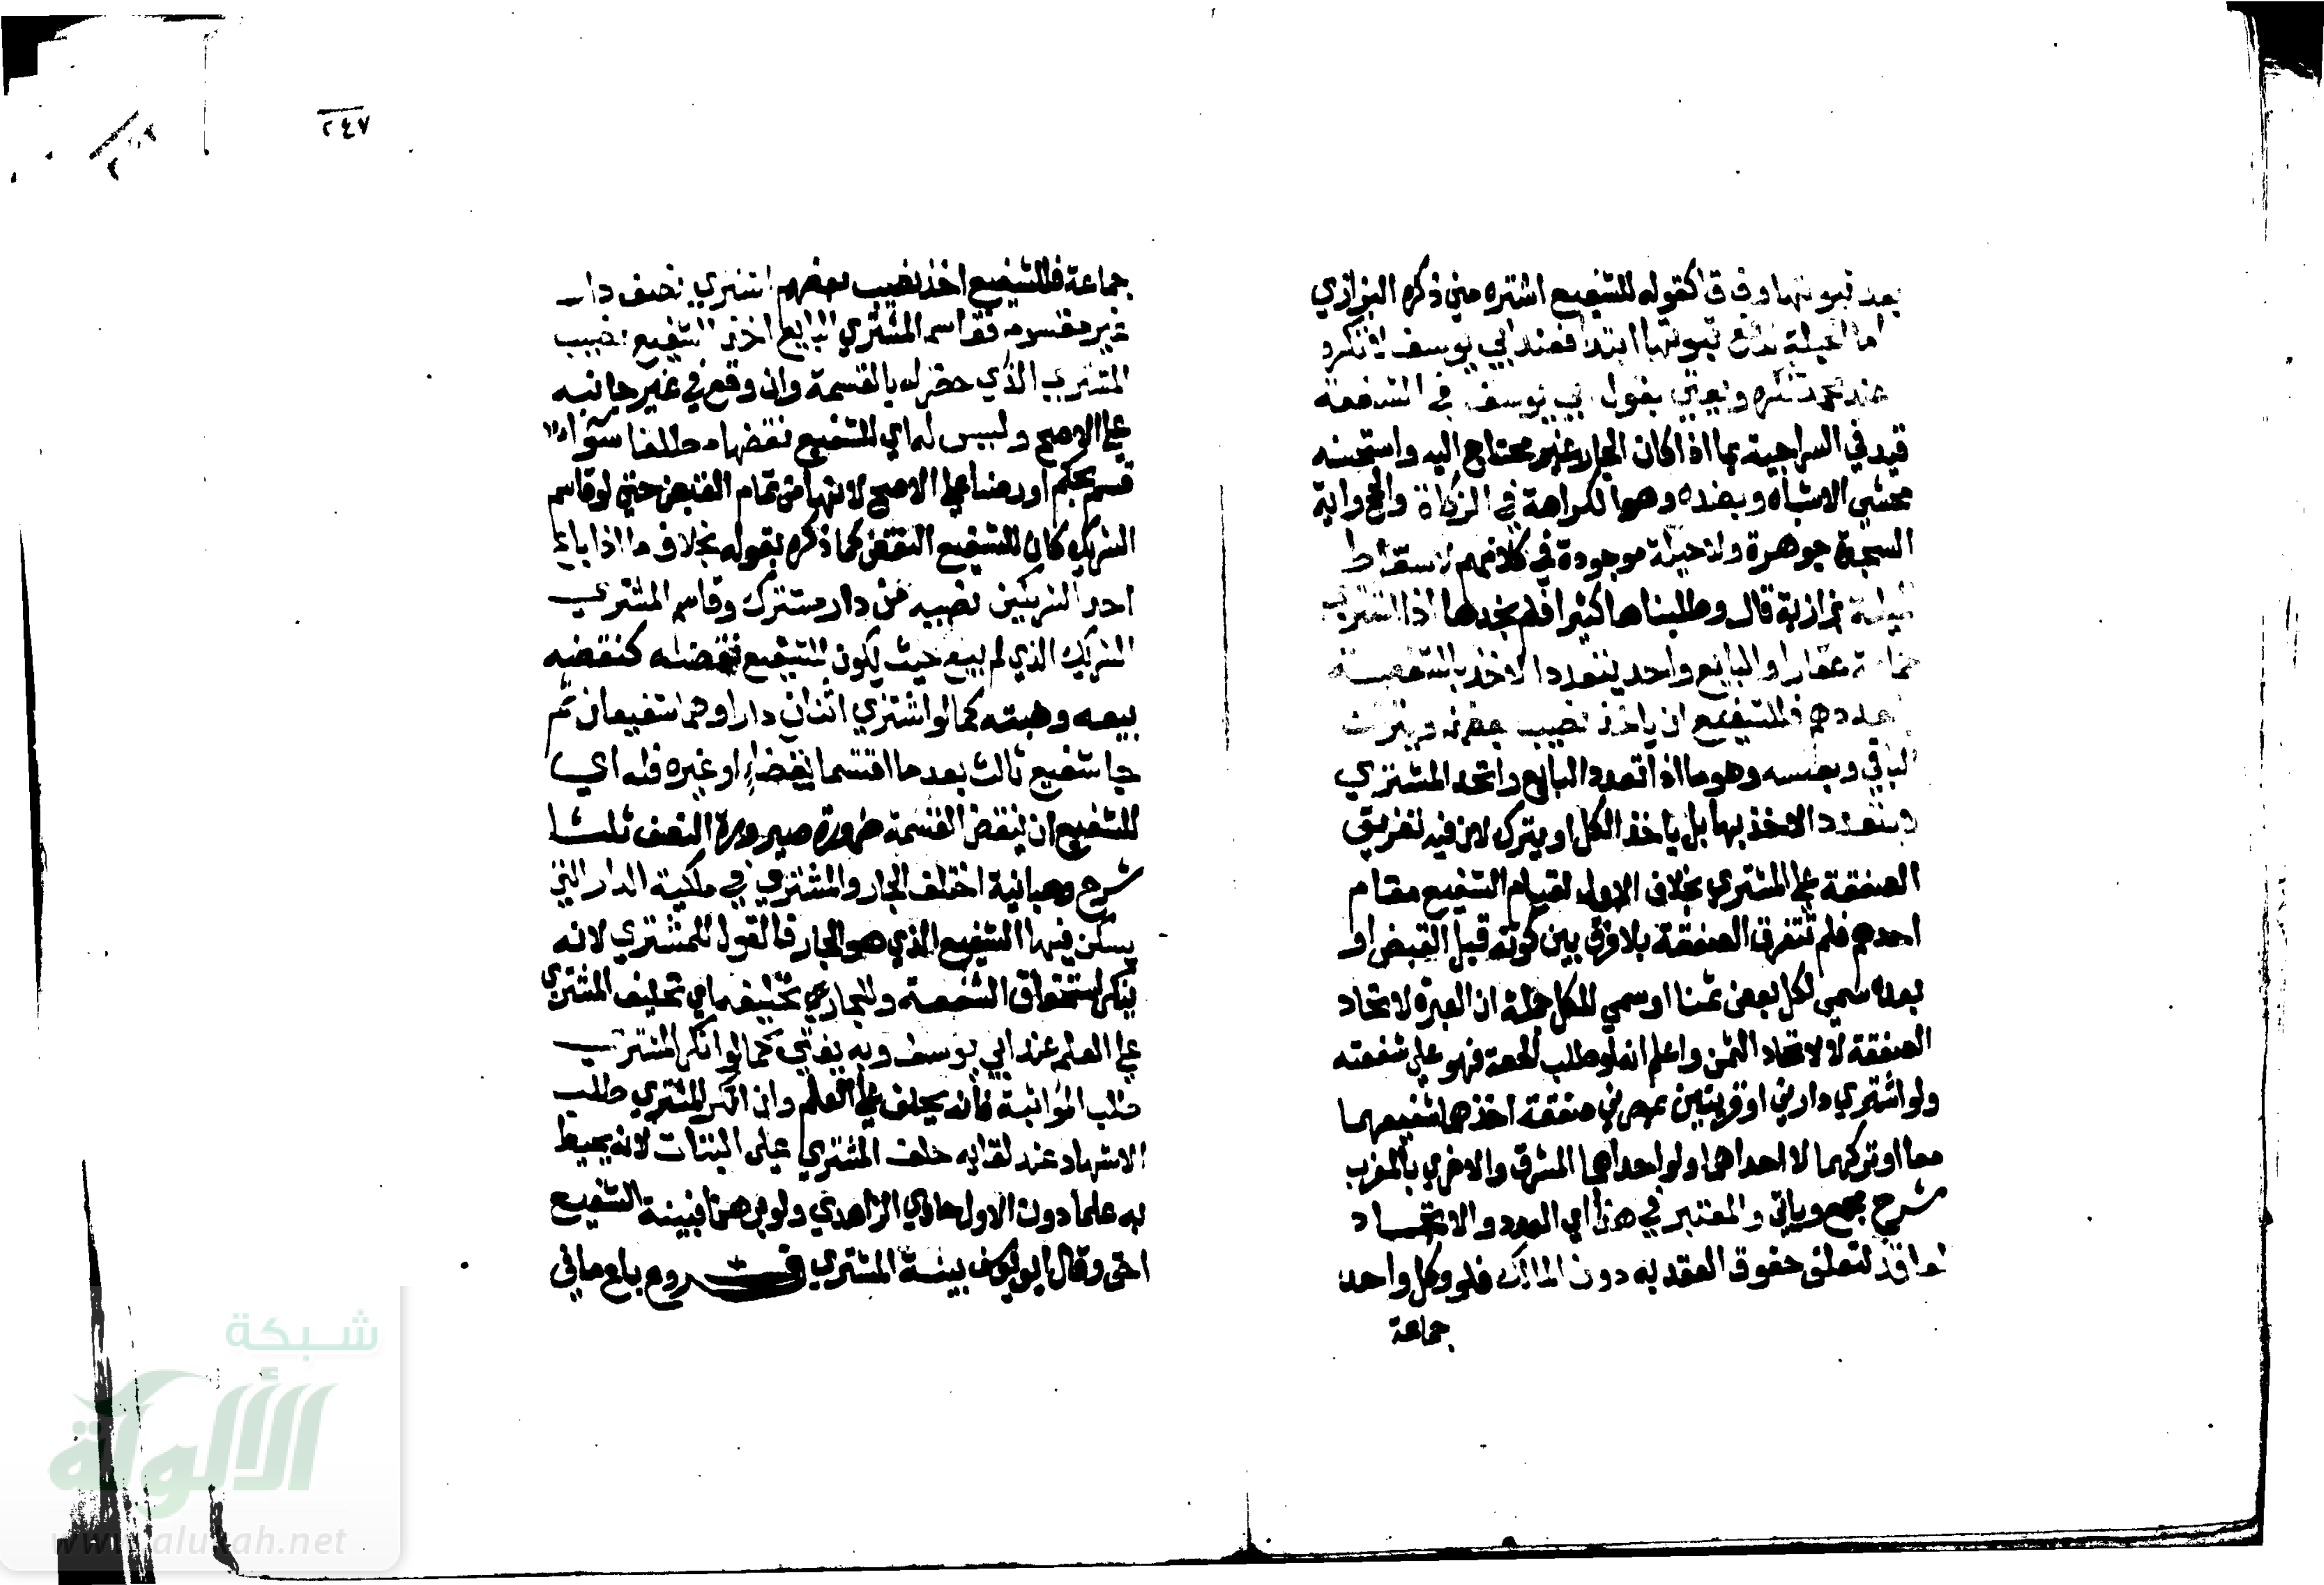 بعد ثبوتها وفاقا كقوله للشفيع اشتره مني ذكره البزازي
اما الحيلة لدفع ثبوتها ابتدا فعند ابي يوسف لا تكره
عند محمد تكره ويفتي بقول ابي يوسف في الشفعة
قيده في السراجية بما اذا كان الجار غير محتاج اليه واستحسنه
محشي الاشباه وبضده وهو الكراهة في الزكاة والحج واية
السجدة جوهرة ولا حيلة موجودة في كلامهم لاسقاط
الحيلة بزازية قال وطلبناها كثيرا فلم نجدها اذا اشترى
جماعة عقارا والبايع واحد يتعدد الاخذ بالشفعة
بتعددهم فللشفيع ان ياخذ نصيب بعضهم ويترك
الباقي وبعكسه وهو ما اذا تعدد البايع واتحد المشتري
لا يتعدد الاخذ بها بل ياخذ الكل او يترك لان فيه تفريق
الصفقة على المشتري بخلاف الاول لقيام الشفيع مقام
احدهم فلم تتفرق الصفقة بلا فرق بين كونه قبل القبض او
بعده سمي لكل بعض ثمنا او سمي للكل جملة ان العبرة لاتحاد
الصفقة لا لاتحاد الثمن واعلم انه لو طلب الحصة فهو على شفعته
ولو اشترى دارين او قريتين بمصرين صفقة اخذهما شفيعهما
معا او تركهما لا احداهما ولو احداهما بالمشرق والاخرى بالمغرب
شرح مجمع وياتي والمعتبر في هذا اي العدد والاتحاد
العاقد لتعلق حقوق العقد به دون المالك فلو وكل واحد
جماعة
٢٤٧
جماعة فللشفيع اخذ نصيب بعضهم اشترى نصف دار
غير مقسوم فقاسم المشتري البايع اخذ الشفيع نصيب
المشتري الذي حصل له بالقسمة وان وقع في غير جانبه
على الاصح وليس له اي للشفيع نقضها مطلقا سواء
قسم بحكم او رضا على الاصح لانها من تمام القبض حتى لو قاسم
الشريك كان للشفيع النقض كما ذكره بقوله بخلاف ما اذا باع
احد الشريكين نصيبه من دار مشترك وقاسم المشتري
الشريك الذي لم يبع حيث يكون للشفيع نقضه كنقضه
بيعه وهبته كما لو اشترى اثنان دارا وهما شفيعان ثم
جا شفيع ثالث بعد ما اقتسما بقضاء او غيره فله اي
للشفيع ان ينقض القسمة ضرورة صيرورة النصف ثلثا
شرح وهبانية اختلف الجار والمشتري في ملكية الدار التي
يسكن فيها الشفيع الذي هو الجار فالقول للمشتري لانه
ينكر استحقاق الشفعة وللجار تحليفه اي تحليف المشتري
على العلم عند ابي يوسف وبه يفتى كما لو انكر المشتري
طلب المواثبة فانه يحلف على العلم وان انكر المشتري طلب
الاشهاد عند لقايه حلف المشتري على البتات لانه يحيط
به علما دون الاول حاوي الزاهدي ولو برهنا فبينة الشفيع
احق وقال ابو يوسف بينة المشتري فـــــروع باع ما في
شبكة
الألوكة
www.alukah.net